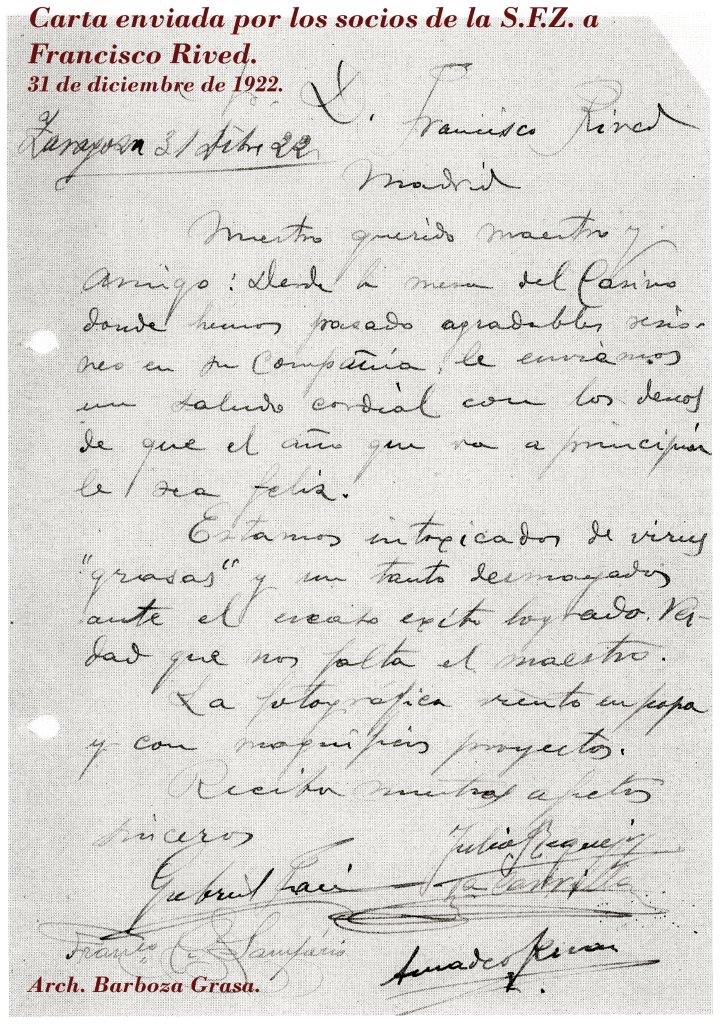 Carta enviada por los socios de la S.F.Z. a
Francisco Rived.
31 de diciembre de 1922.
D. Francisco Rived
Zaragoza 31 Dibre 22
Madrid
Nuestro querido maestro y
amigo: Desde la mesa del Casino
donde hemos pasado agradables
en su compañía, le enviamos
un saludo cordial con los deseos
de que el año que va a principiar
le sea feliz.
Estamos intoxicados de virus
"grasas" y un tanto desmayados
ante el escaso exito logrado. Ver-
dad que nos falta el maestro.
La fotográfica viento en popa
y con magnificos proyectos.
Reciba nuestros afectos
sinceros
Julio Requejo
Gabriel Faci
Amadeo
Arch. Barboza Grasa.